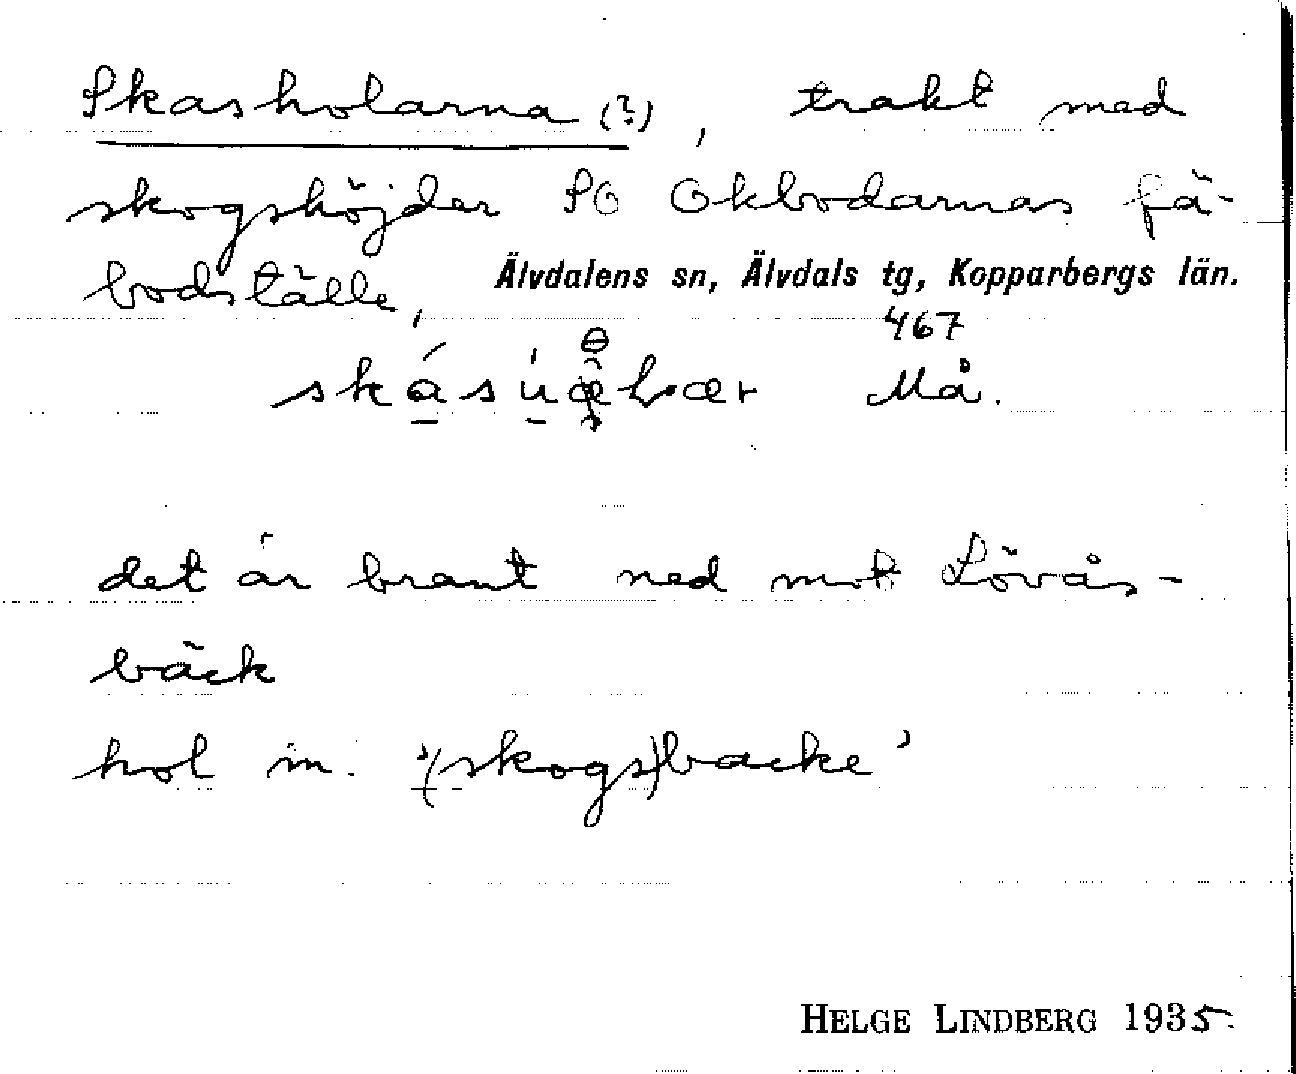 Skasholarna (?), trakt med
skogshöjder SO Okbodarnas fä-
bodställe,
Älvdalens sn, Älvdals tg, Kopparbergs län.
467
Må.
det är brant ned mot Lövås-
bäck
hol m. '(skogs)backe'
HELGE LINDBERG 1935.